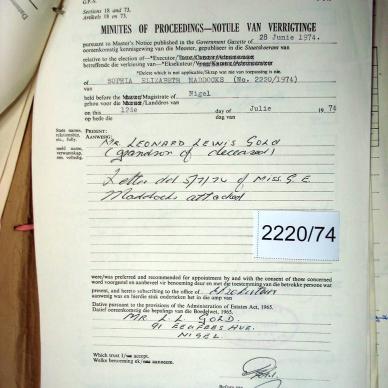 Sections 18 and 73.
Artikels 18 en 73.
MINUTES OF PROCEEDINGS—NOTULE VAN VERRIGTINGE
pursuant to Master's Notice published in the Government Gazette of 28 Junie 1974.
ooreenkomstig kennisgewing van die Meester, gepubliseer in die Staatskoerant van
relative to the election of—*Executor/Tutor/Curator/Administrator
betreffende die verkiesing van—*Eksekuteur/Voog/Kurator/Administrateur
*Delete which is not applicable/Skrap wat nie van toepassing is nie.
of SOPHIA ELIZABETH MADDOCKS (No. 2220/1974)
van
held before the Master/Magistrate of Nigel
gehou voor die Meester/Landdros van
on this 12de day of Julie 1974
op hede die dag van
State names, relationships, etc., fully.
Meld name, verwantskap, ens. volledig.
PRESENT:
AANWESIG:
Mr. Leonard Lewis Gold
(grandson of deceased)
Letter dd 5/7/74 of Miss. G. E.
Maddocks attached
2220/74
were/was preferred and recommended for appointment by and with the consent of those concerned
word voorgestel en aanbeveel vir benoeming deur en met die toestemming van die betrokke persone wat
present, and hereto subscribing to the office of
aanwesig was en hierdie stuk onderteken het in die amp van
Dated pursuant to the provisions of the Administration of Estates Act, 1965.
Datief ooreenkomstig die bepalings van die Boedelwet, 1965.
Mr L. L. Gold
91
Nigel
Which trust I/we accept.
Welke benoeming ek/ons aanneem.
Before me